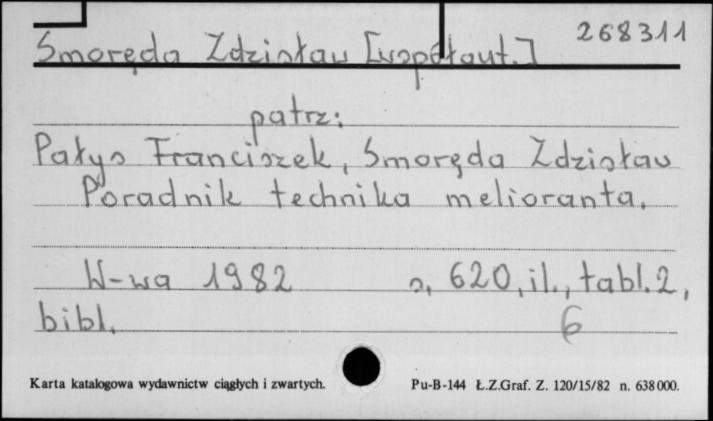 268311
Smoręda Zdzisław [współaut.]
patrz:
Pałys Franciszek, Smoręda Zdzisław
Poradnik technika melioranta.
W-wa 1982 s. 620, il., tabl. 2,
bibl. 6
Karta katalogowa wydawnictw ciągłych i zwartych. Pu-B-144 Ł.Z.Graf. Z. 120/15/82 n. 638000.